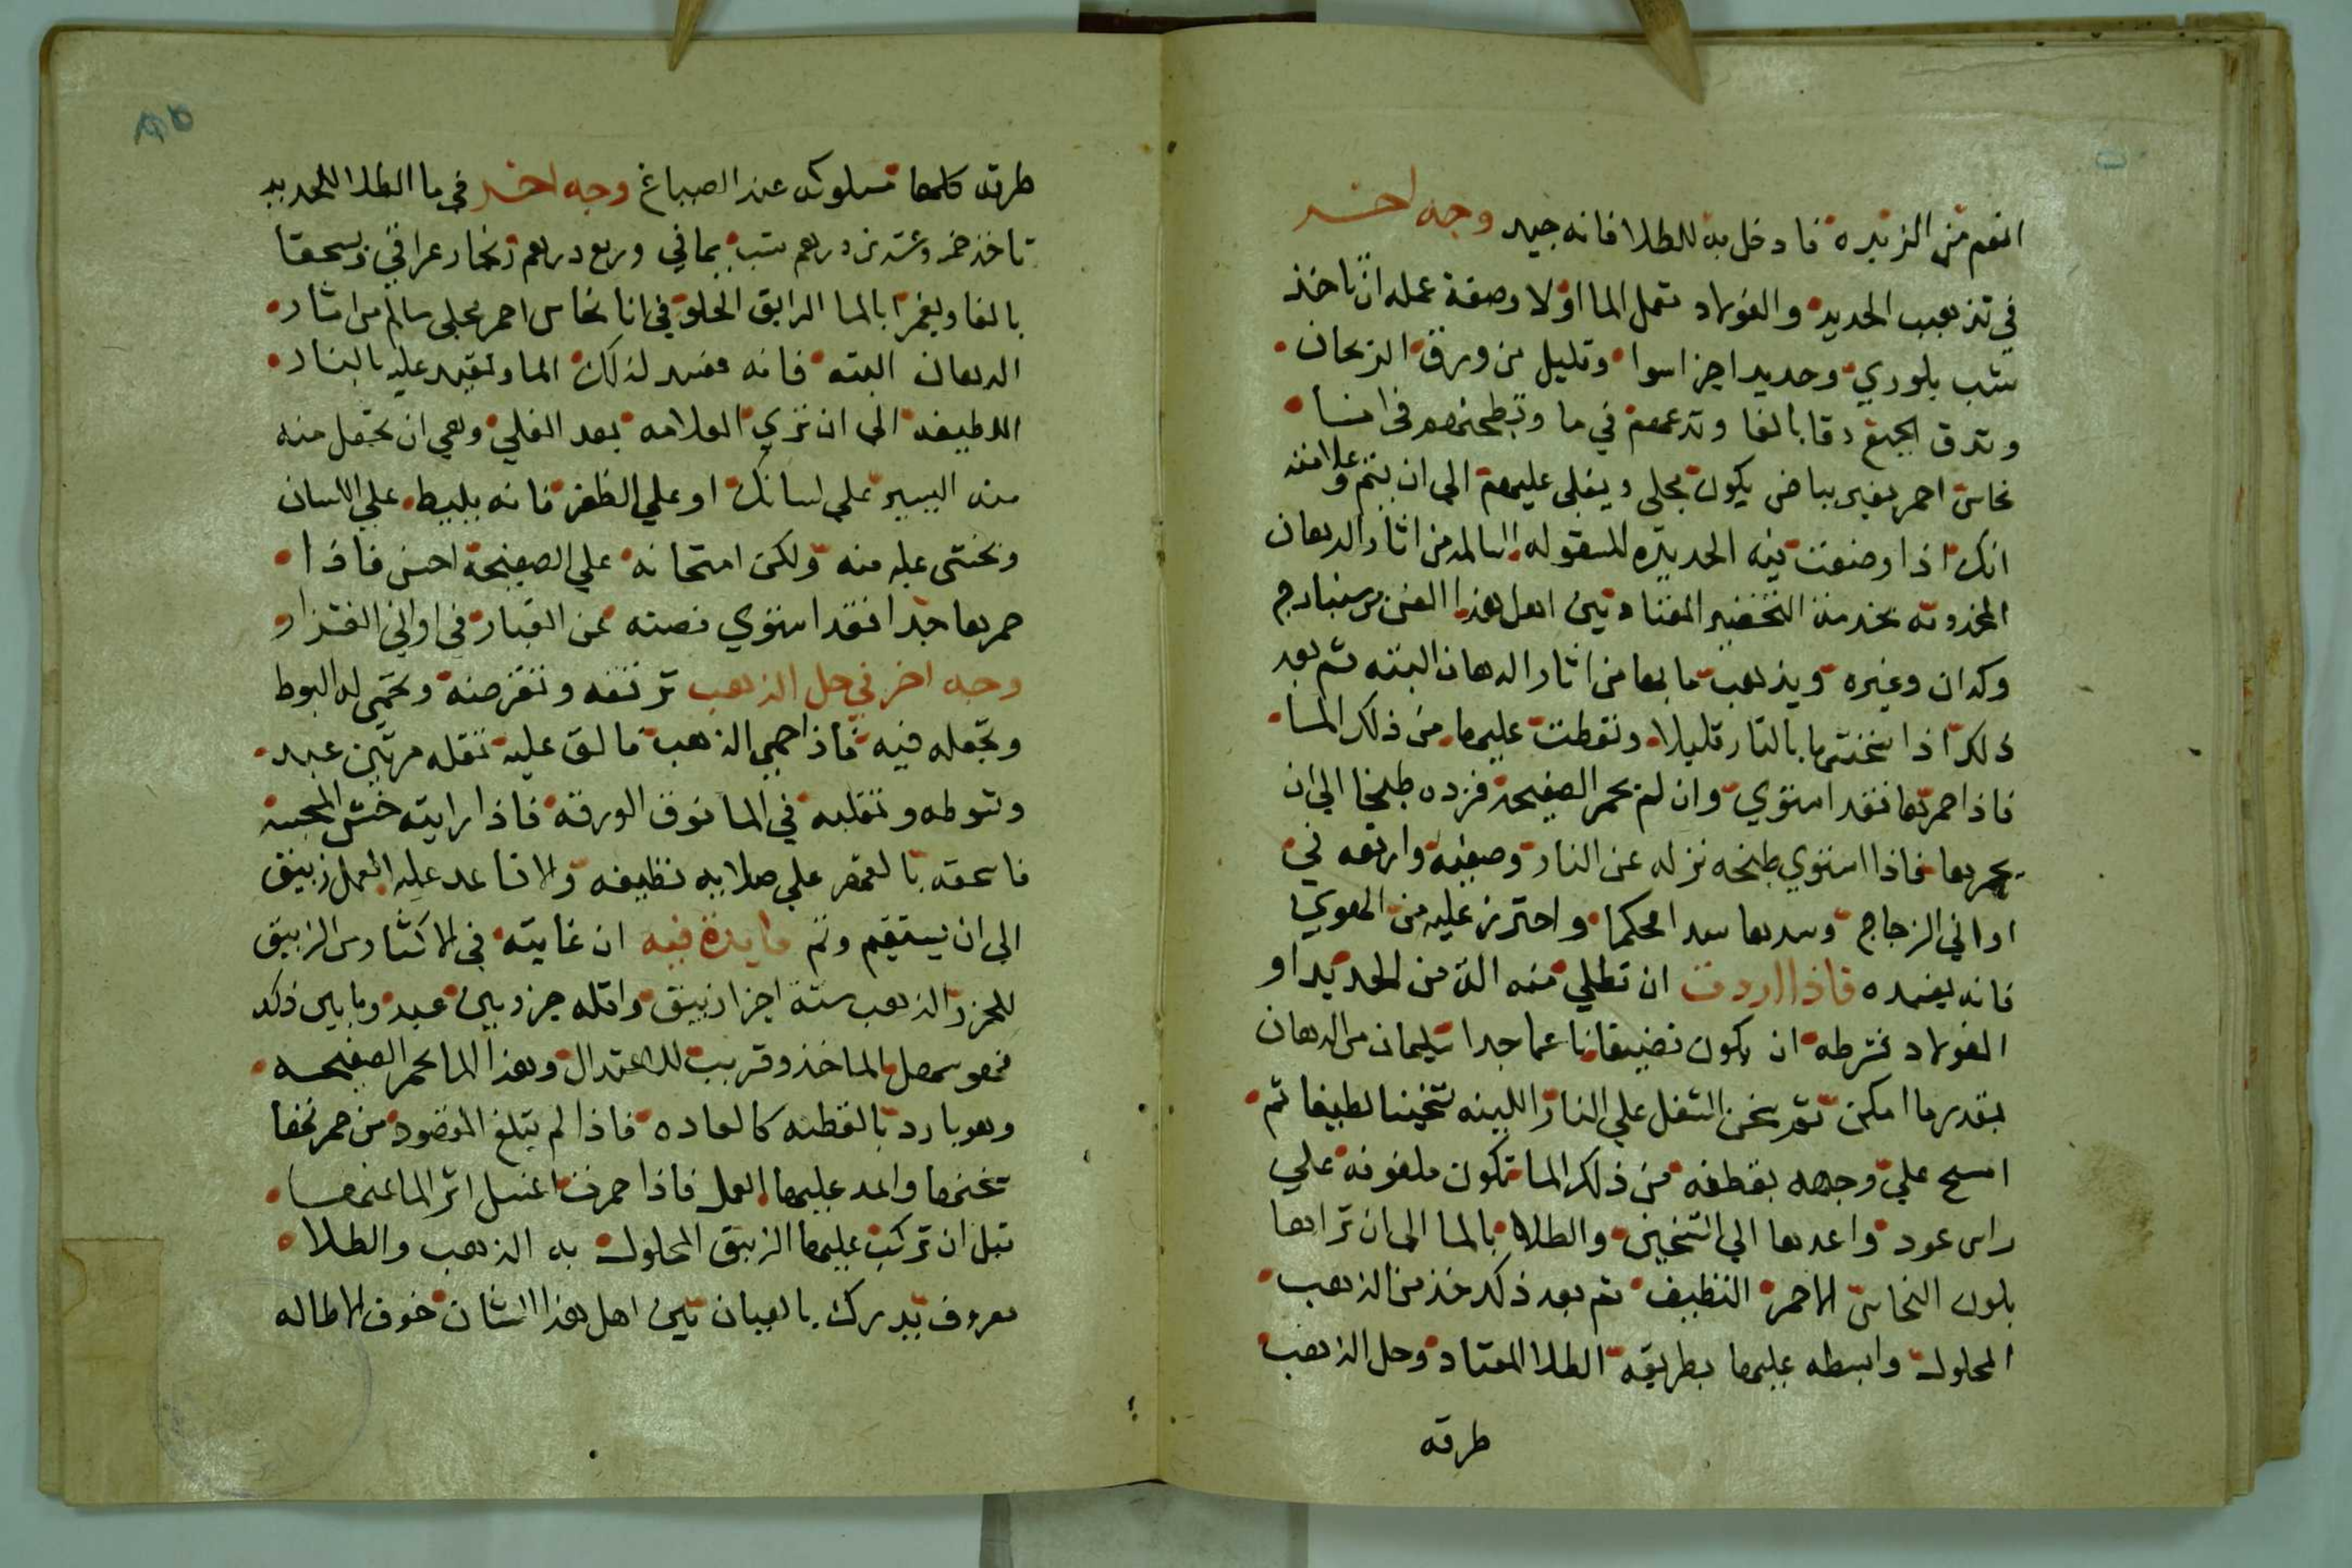 انعم من الزبده فادخل به للطلا فانه جيد وجه اخر
في تذهيب الحديد والفولاد تعمل الما اولا وصفة عمله ان تاخذ
شب بلوري وحديد اجزا سوا وقليل من ورق الريحان
وتدق الجميع دقا بالغا وتدعهم في ما وتطبخهم في انا
نحاس احمر بغير بياض يكون مجلى ويغلى عليهم الى ان يتم وعلامته
انك اذا وضعت فيه الحديده المسقوله السالمه من اثار الدهان
المخدومه بخدمة التخضير المعتاد بين اهل هذا الفن من سنبادج
وكدان وغيره ويذهب ما بها من اثار الدهان البته ثم بعد
ذلك اذا سخنتها بالنار قليلا ونقطت عليها من ذلك الما
فاذا حمرها فقد استوي وان لم يحمر الصفيحة فزده طبخا الي ان
يحمرها فاذا استوي طبخه نزله عن النار وصفيه وارفعه في
اواني الزجاج وسدها سدا محكما واحترز عليه من الهوي
فانه يفسده فاذا اردت ان تطلي منه الة من الحديد او
الفولاد فشرطه ان يكون نضيفا ناعما جدا سليمان من الدهان
بقدر ما امكن ثم سخن الشغل علي النار اللينه تسخينا لطيفا ثم
امسح علي وجهه بقطنه من ذلك الما تكون ملفوفه علي
راس عود واعدها الي التسخين والطلا بالما الى ان تراها
بلون النحاس الاحمر النظيف ثم بعد ذلك خذ من الذهب
المحلول وابسطه عليها بطريقه الطلا المعتاد وحل الذهب
طرقه
طرقه كلها مسلوكه عند الصياغ وجه اخر في ما الطلا للحديد
تاخذ خمسه وعشرين درهم شب يماني وربع درهم زنجار عراقي ويسحقا
بالغا ويغمرا بالما الرايق الحلو في انا نحاس احمر مجلى سالم من اثار
الدهان البته فانه مفسد لذلك الما وتقيد عليه بالنار
اللطيفه الى ان تري العلامه بعد الغلي وهي ان تجعل منه
منه اليسير على لسانك او علي الظفر فانه يلبط علي اللسان
ونخشى عليه منه ولكن امتحانه علي الصفيحة احسن فاذا
حمرها جيدا فقد استوي فصنه عن الغبار في اواني القزاز
وجه اخر في حل الذهب ترققه وتقرضه وتحمي له البوط
وتجعله فيه فاذا حمي الذهب فالق عليه ثقله مرتين عبد
وتسوطه وتقلبه في الما فوق الورقه فاذا رايته خشن المجسة
فاسحقه بالفهر علي صلايه نظيفه والا فاعد عليه العمل زيبق
الي ان يستقيم وثم فايدة فيه ان غايته في الاكثار من الزيبق
للجزو الذهب ستة اجزا زيبق واقله جزويين عبد وما بين ذلك
فهو سهل الماخذ وقريب للاعتدال وهذا الما يحمر الصفيحه
وهو بارد بالقطنه كالعاده فاذا لم يبلغ المقصود من حمرتها
سخنها واعد عليها العمل فاذا حمرت اغسل اثر الما عنها
قبل ان تركب عليها الزيبق المحلول به الذهب والطلا
معروف يدرك بالعيان بين اهل هذا الشان خوف الاطاله